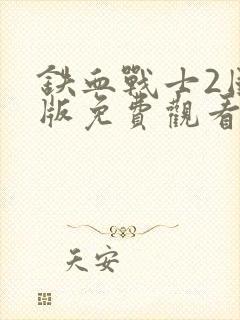 鉄血戰士2國
版免費觀看
天安